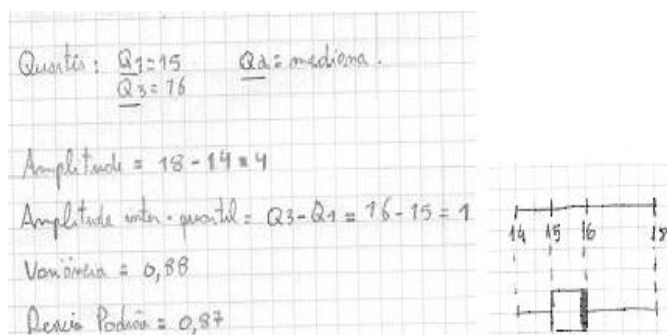 Quartis: Q1=15 Q2= mediana.
Q3=16
Amplitude = 18-14=4
Amplitude inter-quartil= Q3-Q1= 16-15=1
Variância = 0,88
Desvio Padrão = 0,87
14 15 16 18